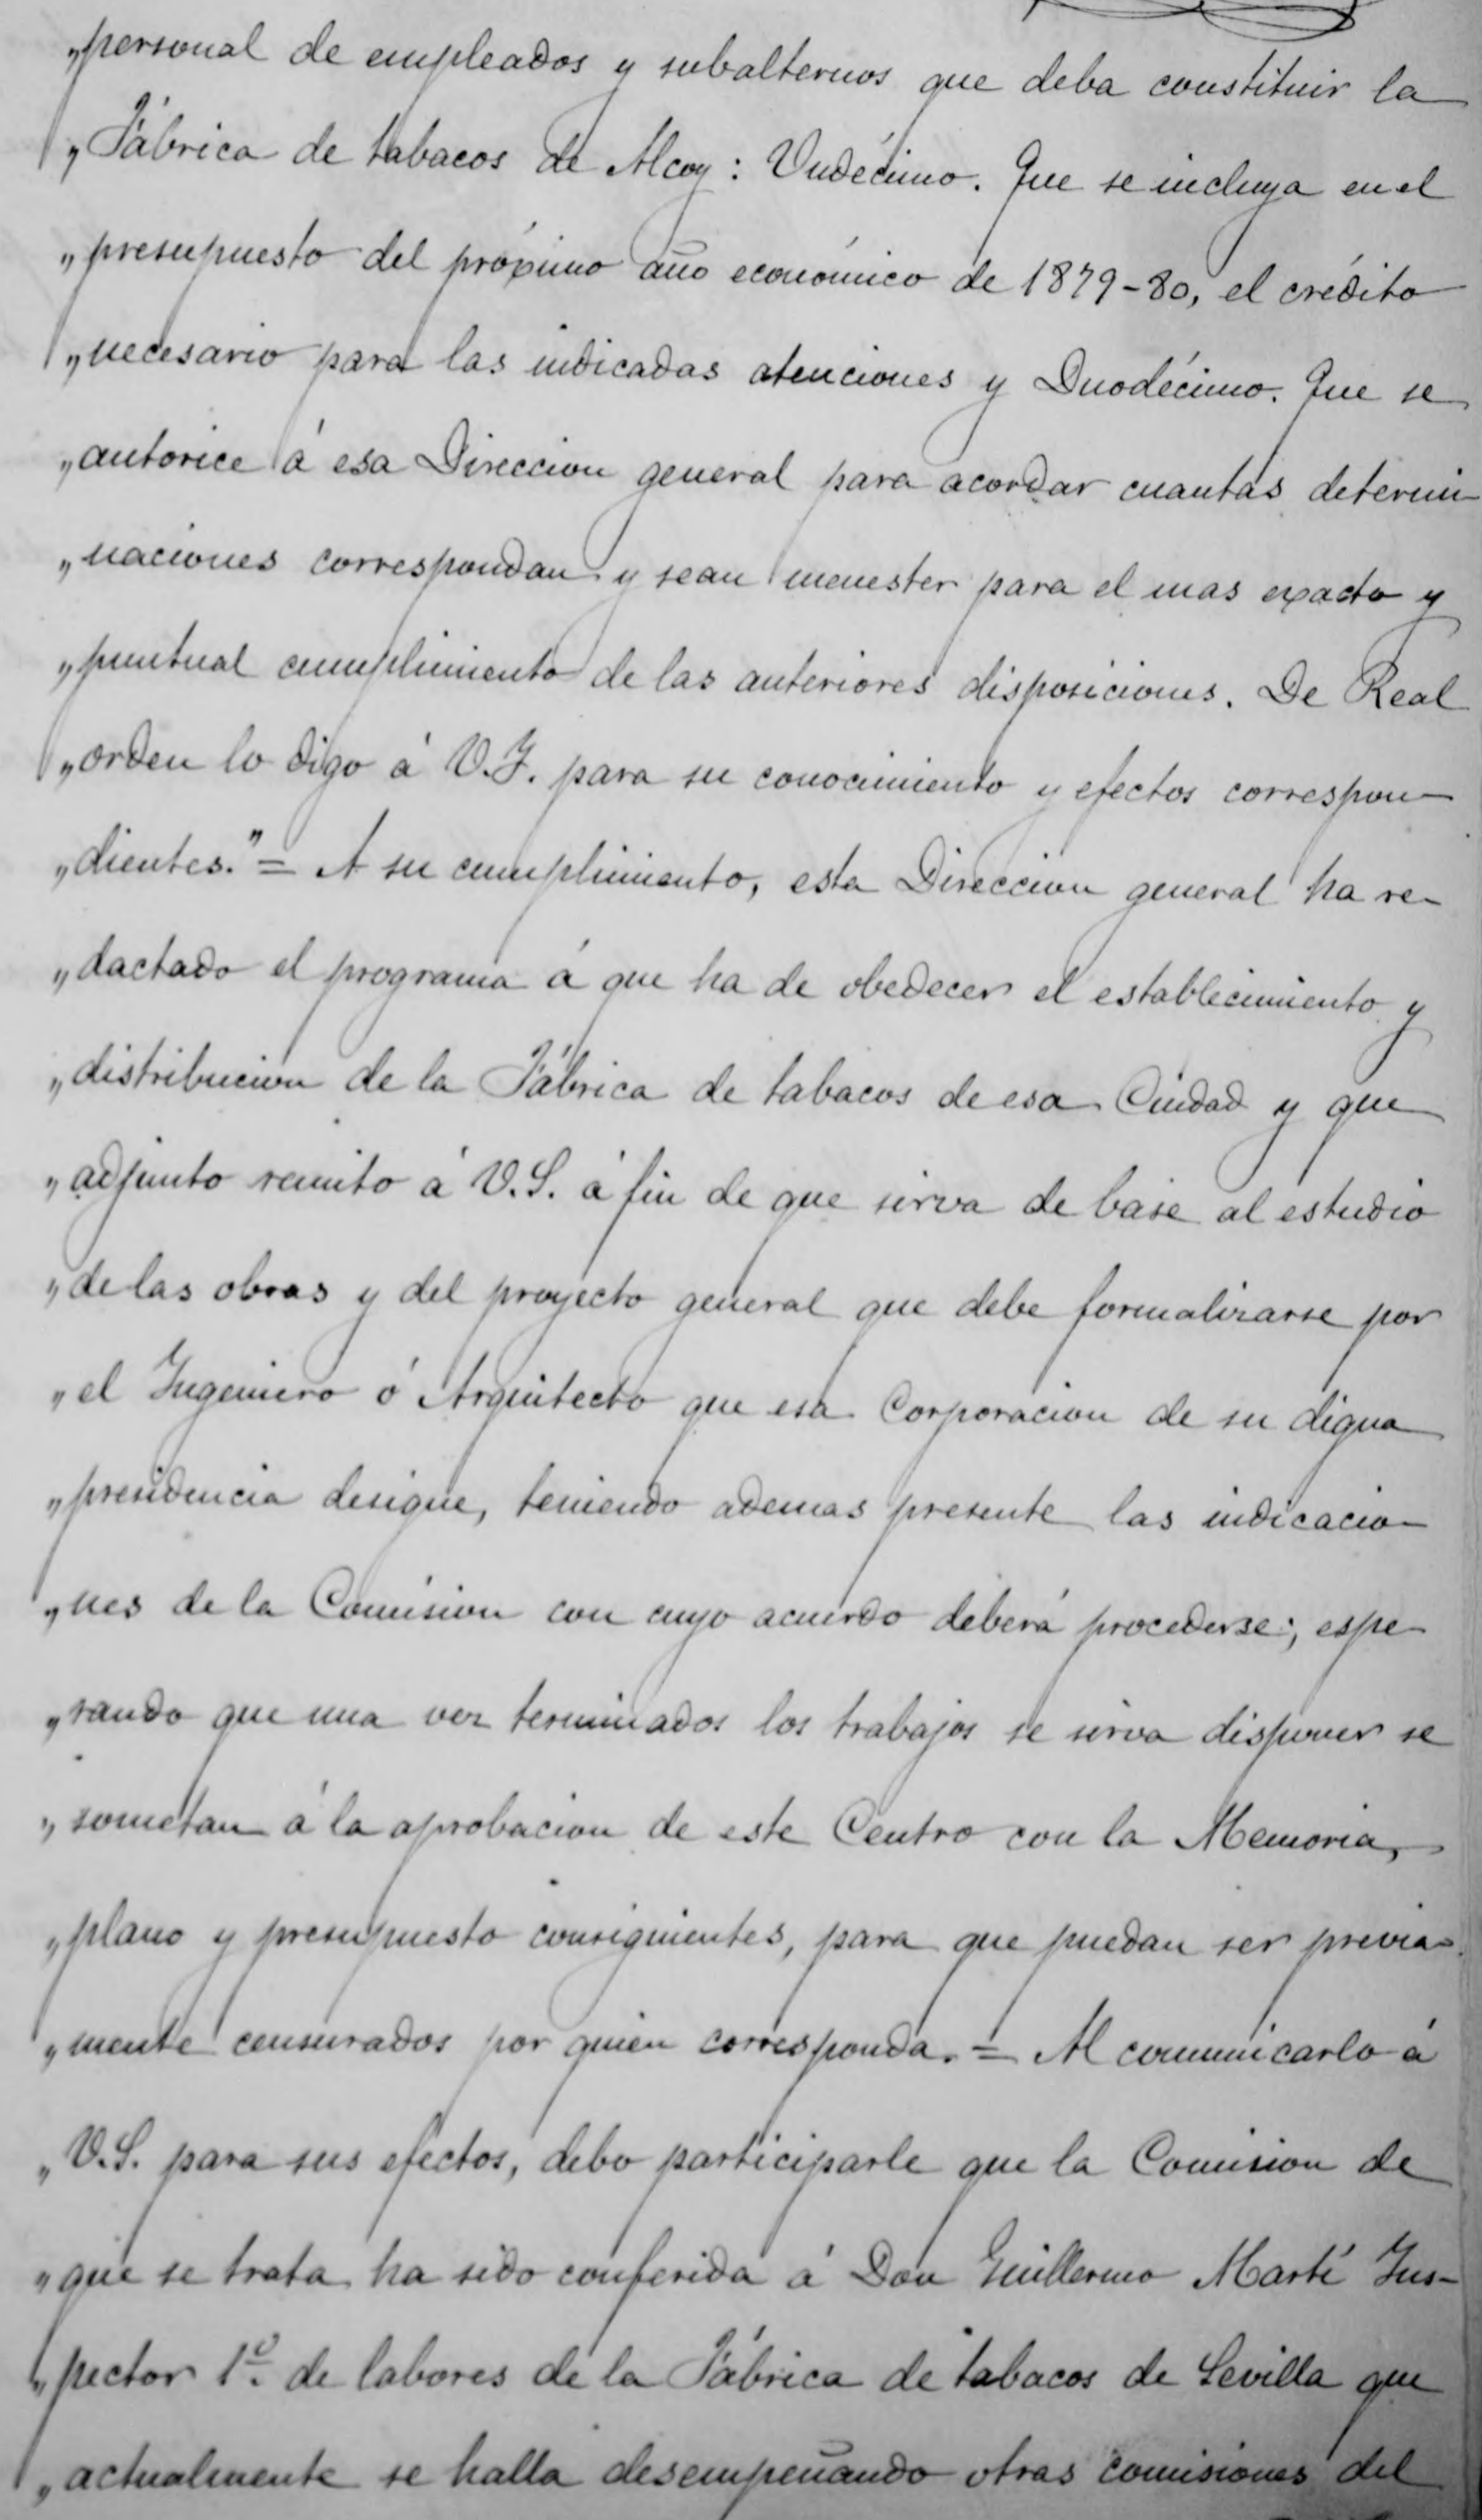 „personal de empleados y subalternos que deba constituir la
„Fábrica de tabacos de Alcoy: Undécimo. Que se incluya en el
„presupuesto del próximo año económico de 1879-80, el crédito
„necesario para las indicadas atenciones y Duodécimo. Que se
„autorice á esa Direccion general para acordar cuantas determi-
„naciones correspondan y sean menester para el mas exacto y
„puntual cumplimiento de las anteriores disposiciones. De Real
„orden lo digo á V.I. para su conocimiento y efectos correspon-
„dientes." = A su cumplimiento, esta Direccion general ha re-
„dactado el programa á que ha de obedecer el establecimiento y
„distribucion de la Fábrica de tabacos de esa Ciudad y que
„adjunto remito á V.S. á fin de que sirva de base al estudio
„de las obras y del proyecto general que debe formalizarse por
„el Ingeniero ó Arquitecto que esa Corporacion de su digna
„presidencia designe, teniendo ademas presente las indicacio-
„nes de la Comision con cuyo acuerdo deberá procederse; espe-
„rando que una vez terminados los trabajos se sirva disponer se
„sometan á la aprobacion de este Centro con la Memoria,
„plano y presupuesto consiguientes, para que puedan ser previa-
„mente censurados por quien corresponda. = Al comunicarlo á
„V.S. para sus efectos, debo participarle que la Comision de
„que se trata ha sido conferida á Don Guillermo Martí Ins-
„pector 1º. de labores de la Fábrica de tabacos de Sevilla que
„actualmente se halla desempeñando otras comisiones del